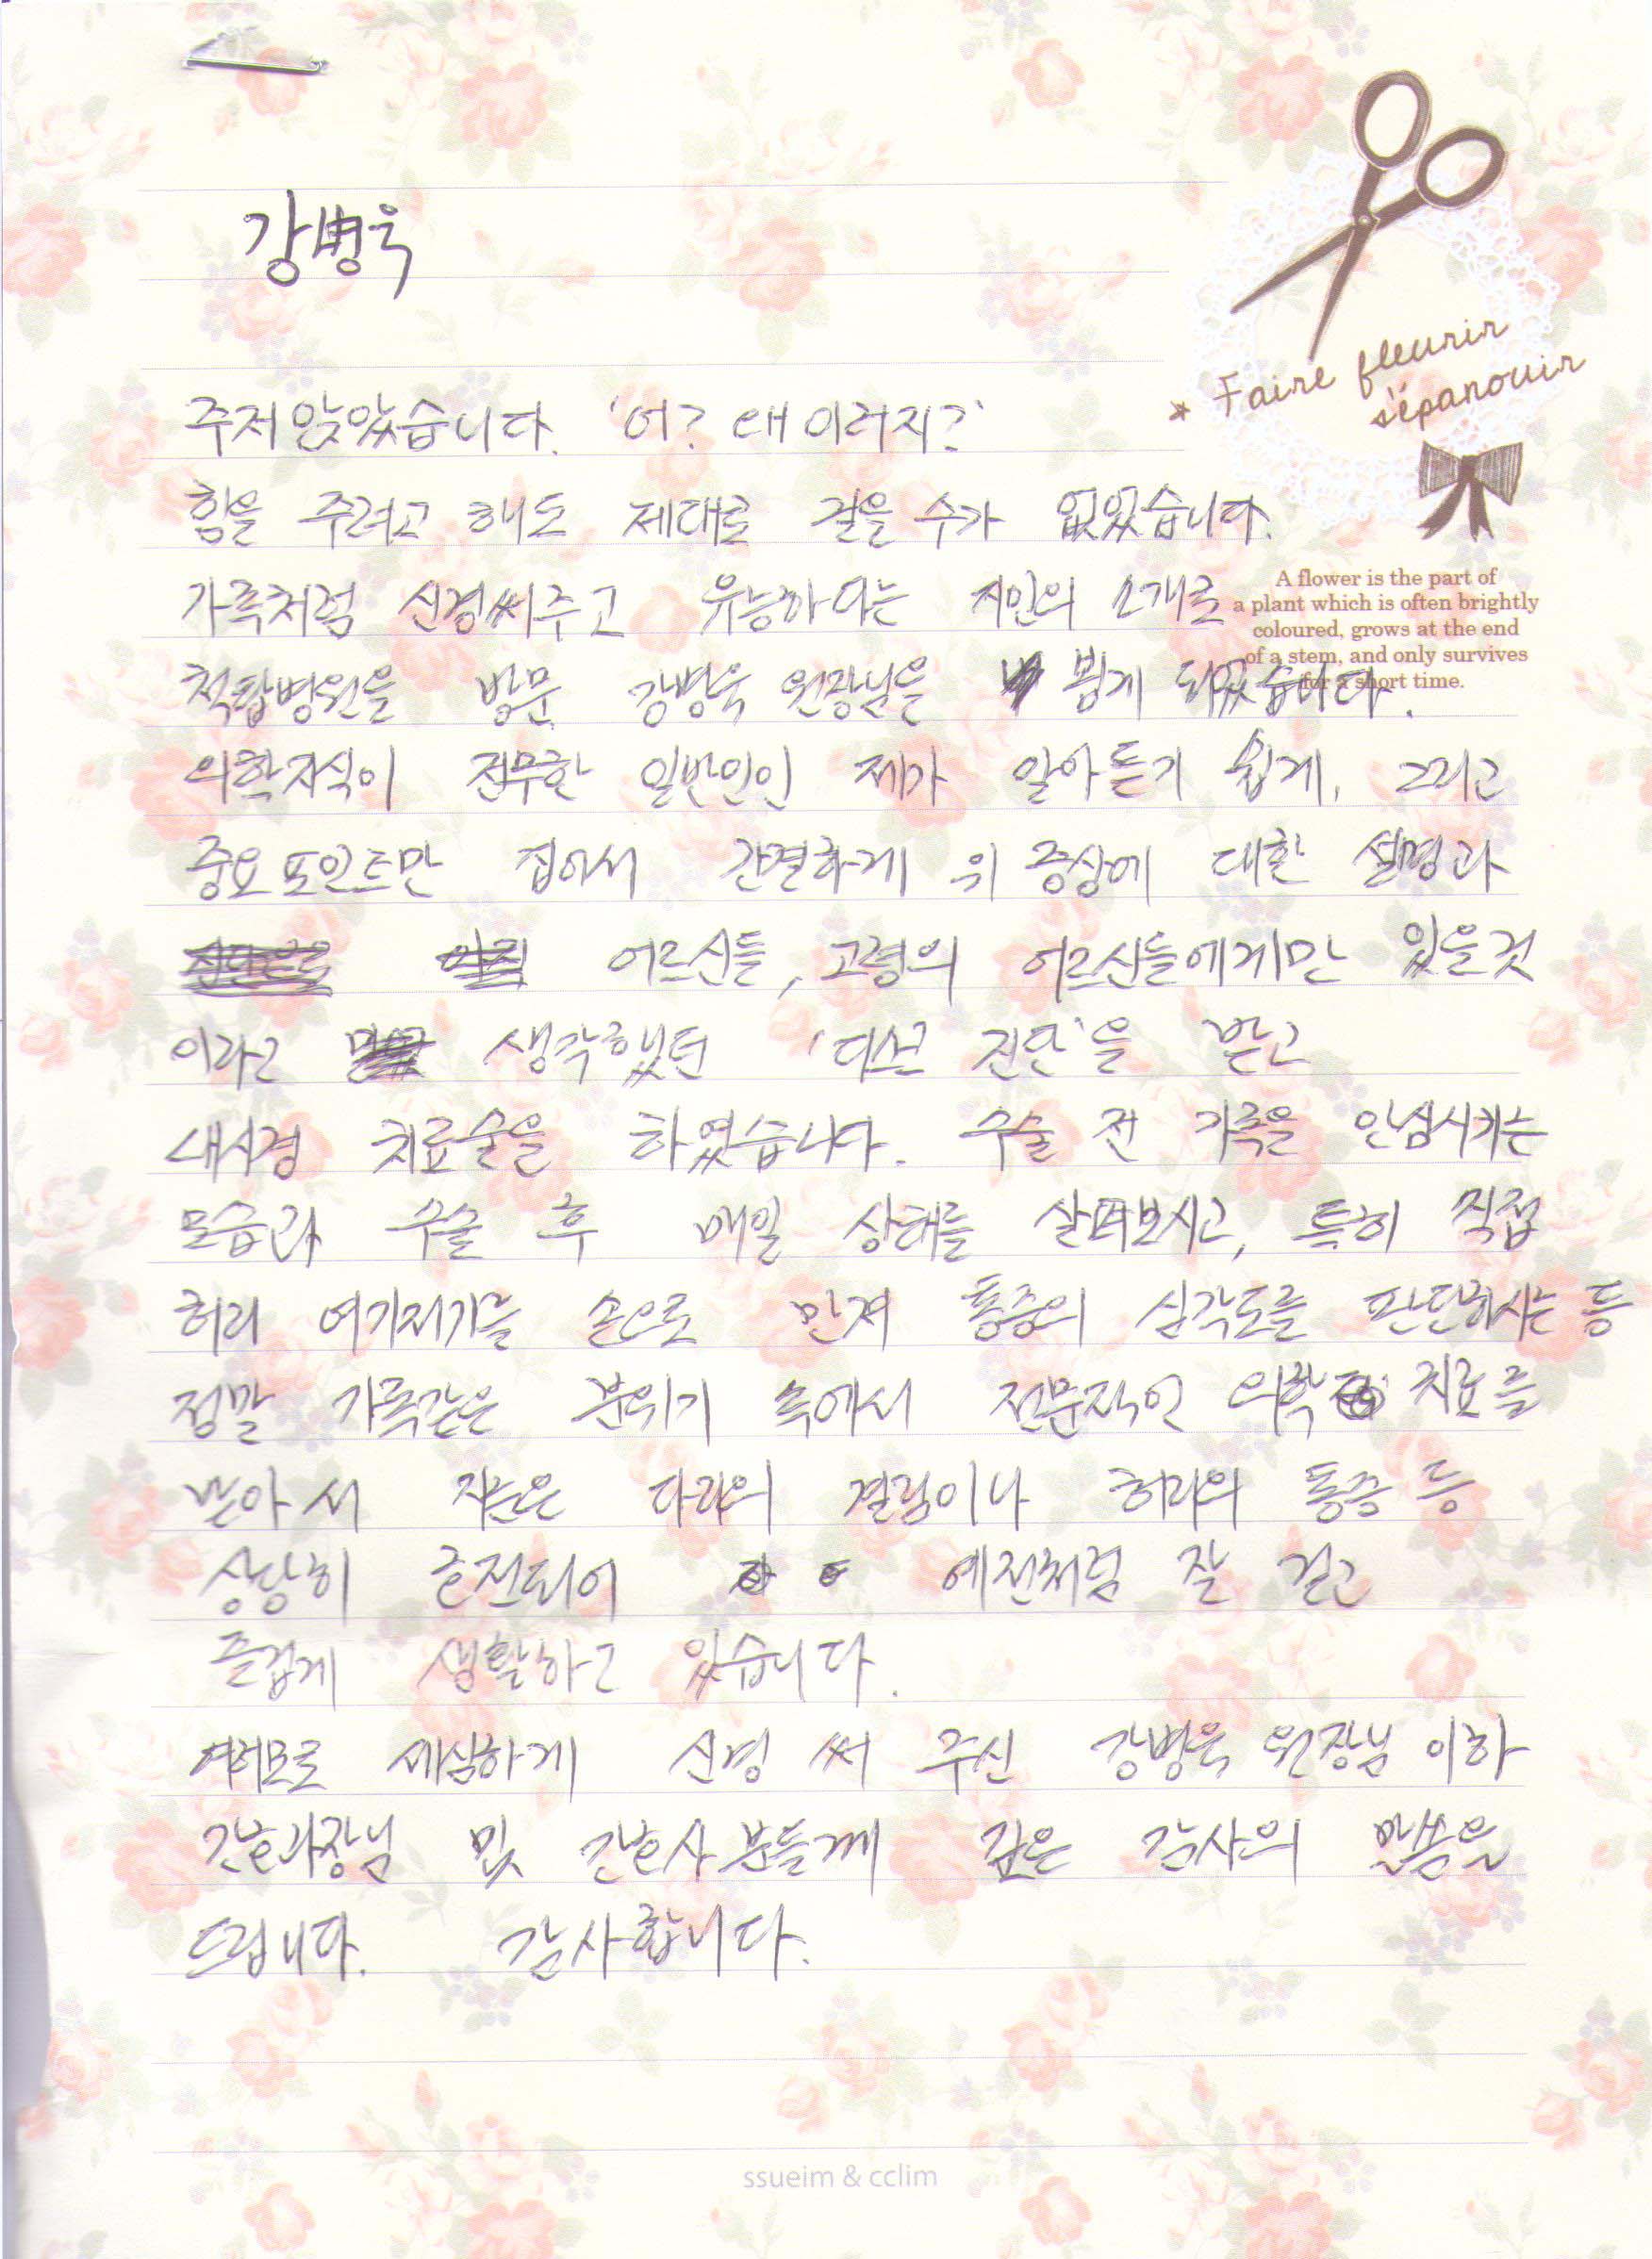 강병욱
* Faire fleurir
s'épanouir
주저앉았습니다. '어? 왜 이러지?'
힘을 주려고 해도 제대로 걸을 수가 없었습니다.
가족처럼 신경써주고 유능하다는 지인의 소개로
A flower is the part of
a plant which is often brightly
coloured, grows at the end
of a stem, and only survives
for a short time.
척탑병원을 방문, 강병욱 원장님을 뵙게 되었습니다.
의학지식이 전무한 일반인인 제가 알아듣기 쉽게, 그리고
중요 포인트만 집어서 간결하게 위 증상에 대한 설명과
어르신들, 고령의 어르신들에게만 있을것
이라고 생각했던 '디스크 진단'을 받고
내시경 치료술을 하였습니다. 수술 전 가족을 안심시키는
모습과 수술 후 매일 상태를 살펴보시고, 특히 직접
허리 여기저기를 손으로 만져 통증의 심각도를 판단하시는 등
정말 가족같은 분위기 속에서 전문적인 의학 치료를
받아서 지금은 다리의 결림이나 허리의 통증 등
상당히 호전되어 예전처럼 잘 걷고
즐겁게 생활하고 있습니다.
여러모로 세심하게 신경 써 주신 강병욱 원장님 이하
간호과장님 및 간호사분들께 깊은 감사의 말씀을
드립니다. 감사합니다.
ssueim & cclim